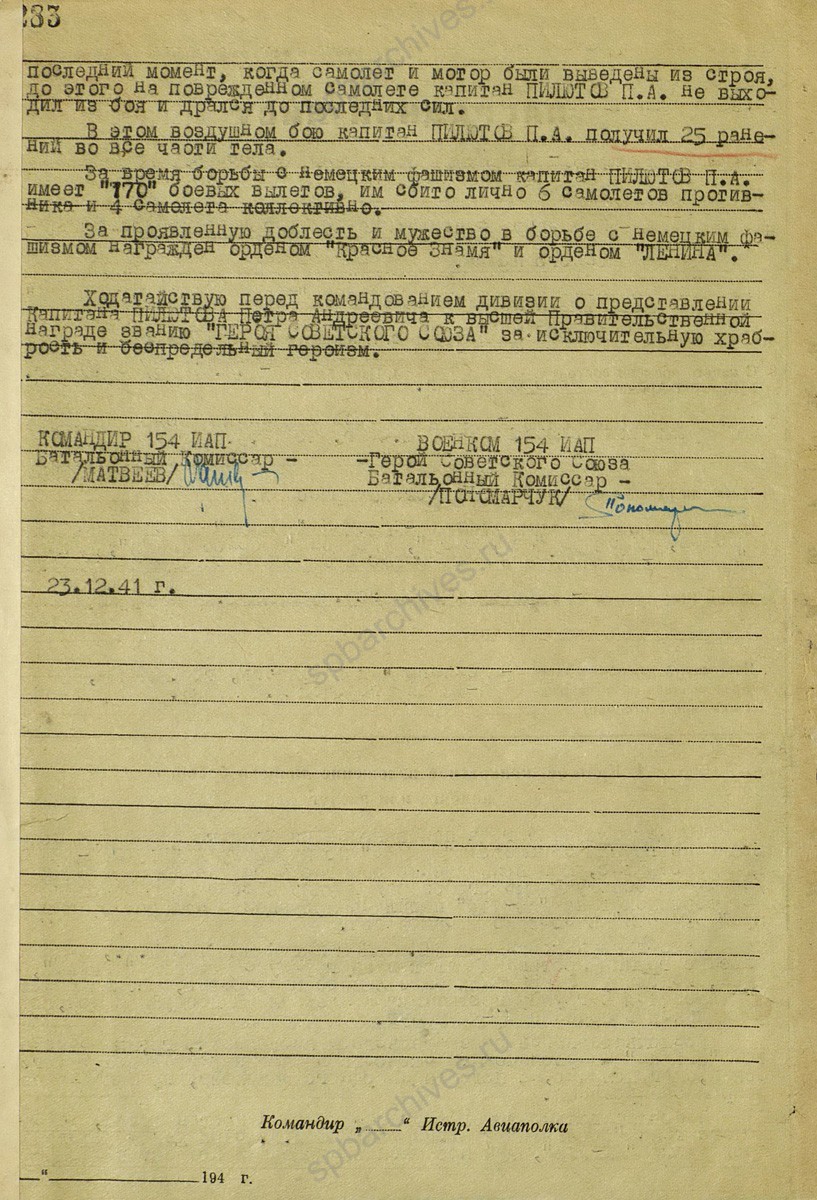 283
последний момент, когда самолет и мотор были выведены из строя,
до этого на поврежденном самолете капитан ПИЛЮТОВ П.А. не выхо-
дил из боя и дрался до последних сил.
В этом воздушном бою капитан ПИЛЮТОВ П.А. получил 25 ране-
ний во все части тела.
За время борьбы с немецким фашизмом капитан ПИЛЮТОВ П.А.
имеет "170" боевых вылетов, им сбито лично 6 самолетов против-
ника и 4 самолета коллективно.
За проявленную доблесть и мужество в борьбе с немецким фа-
шизмом награжден орденом "Красное Знамя" и орденом "ЛЕНИНА".
Ходатайствую перед командованием дивизии о представлении
Капитана ПИЛЮТОВА Петра Андреевича к высшей Правительственной
награде званию "ГЕРОЯ СОВЕТСКОГО СОЮЗА" за исключительную храб-
рость и беспредельный героизм.
КОМАНДИР 154 ИАП
Батальонный Комиссар -
/МАТВЕЕВ/
ВОЕНКОМ 154 ИАП
-Герой Советского Союза
Батальонный Комиссар -
/ПОТОМАРЧУК/
23.12.41 г.
Командир „......“ Истр. Авиаполка
“ 194 г.
spbarchives.ru
spbarchives.ru
spbarchives.ru